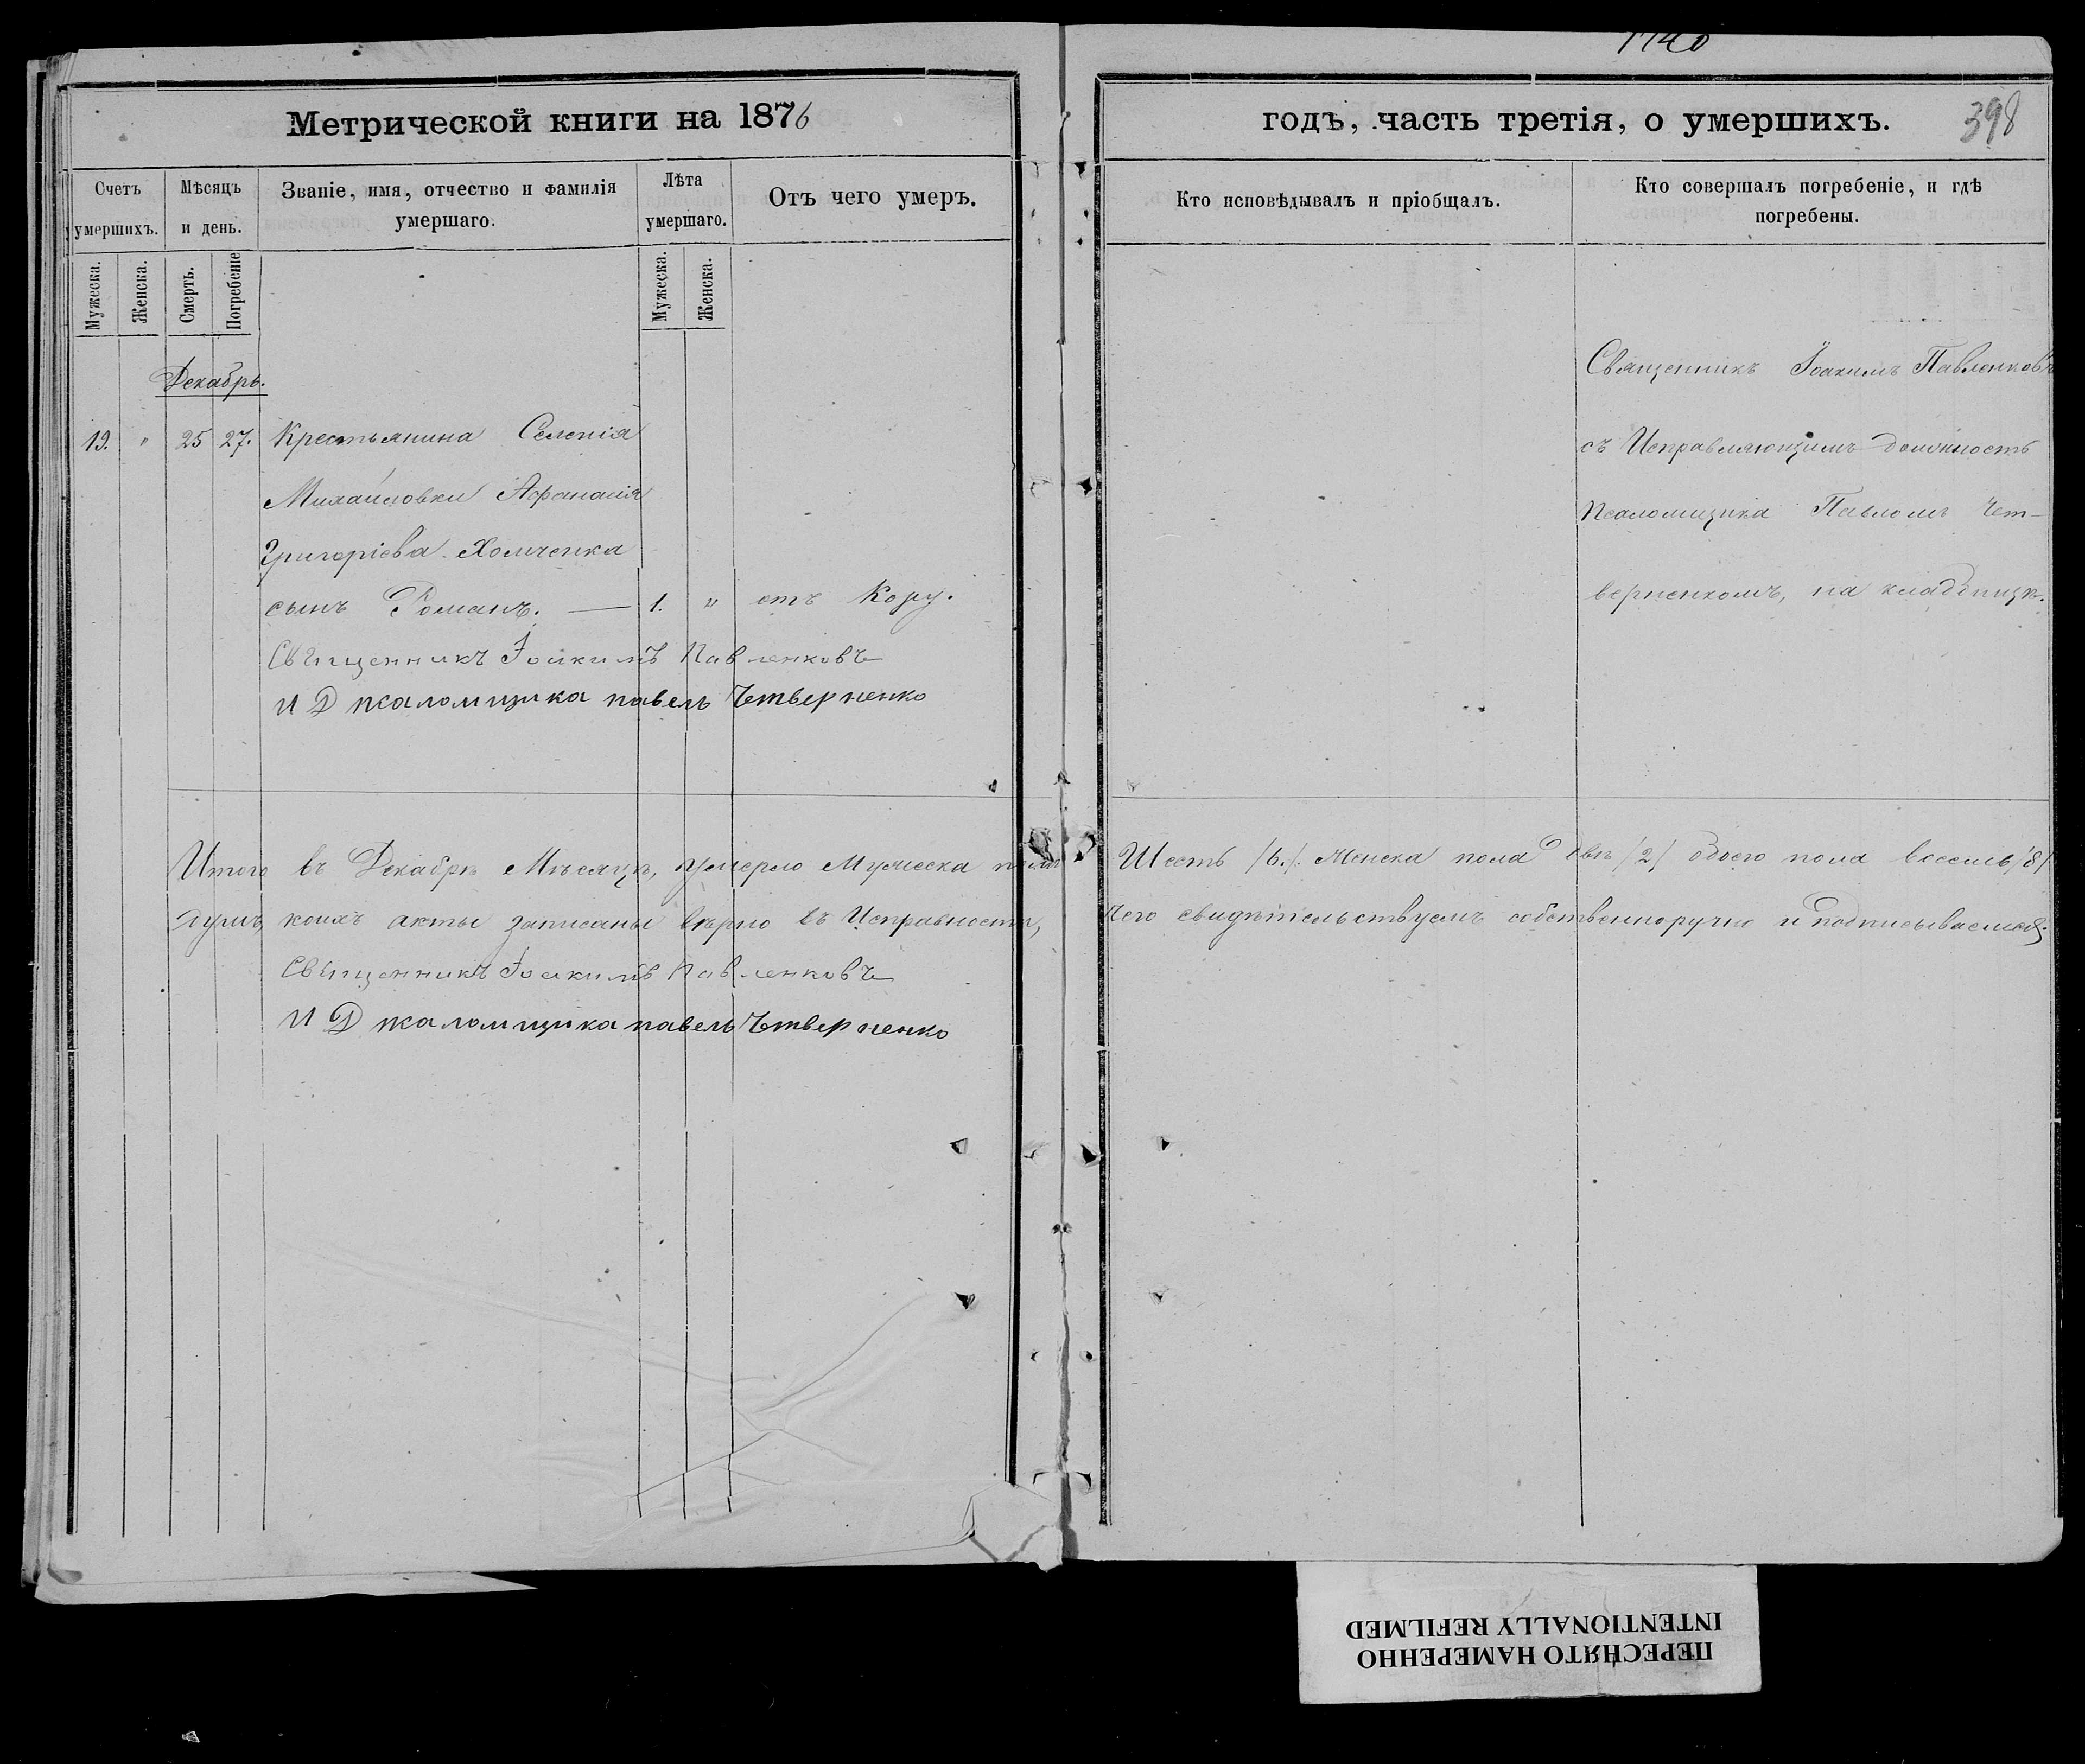 1740
Метрической книги на 1876
годъ, часть третія, о умершихъ.
398
Счетъ умершихъ.
Мѣсяцъ и день.
Званіе, имя, отчество и фамилія умершаго.
Лѣта умершаго.
Отъ чего умеръ.
Кто исповѣдывалъ и пріобщалъ.
Кто совершалъ погребеніе, и гдѣ погребены.
Мужеска.
Женска.
Смерть.
Погребеніе
Мужеска.
Женска.
Декабрь.
19. " 25 27. Крестьянина Селенія
Михайловки Афанасія
Григоріева Хомченка
сынъ Романъ. — 1. " отъ Кору.
Священникъ Іоакимъ Павленковъ
И Д псаломщика павелъ Четверненко
Священникъ Іоакимъ Павленковъ
съ Исправляющимъ должность
Псаломщика Павломъ Чет-
верненкомъ, на кладбищѣ.
Итого въ Декабрѣ Мѣсяцѣ, умерло Мужеска пола Шесть /6./ Женска пола двѣ /2/ обоего пола восемь /8/
душъ, коихъ акты записаны вѣрно въ Исправности, чего свидѣтельствуемъ собственноручно и подписываемся.
Священникъ Іоакимъ Павленковъ
И Д псаломщика павелъ Четверненко
ПЕРЕСНЯТО НАМЕРЕННО
INTENTIONALLY REFILMED